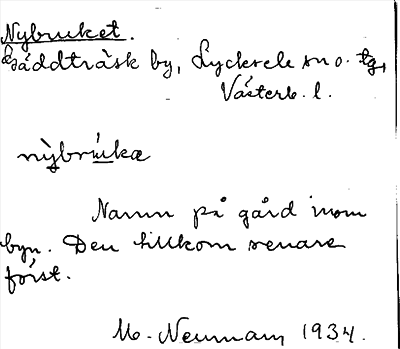 Nybruket.
Gäddträsk by, Lycksele sn o. tg,
Västerb. l.
nỳbrúkæ
Namn på gård inom
byn. Den tillkom senare
först.
M. Neuman 1934.